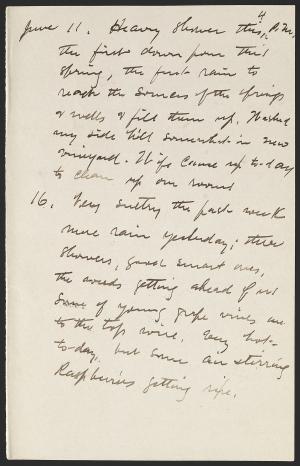 June 11. Heavy shower this P.M.
4
the first down pour this
spring, the first rain to
reach the sources of the springs
& wells & fill them up. Washed
my side hill somewhat in new
vineyard. Wife came up to-day
to clean up our room
16. Very sultry the past week
more rain yesterday; three
showers, good smart ones,
the weeds getting ahead of us
Some of young grape vines up
to the top wire. Very hot
to-day, but some air stirring
Raspberries getting ripe.